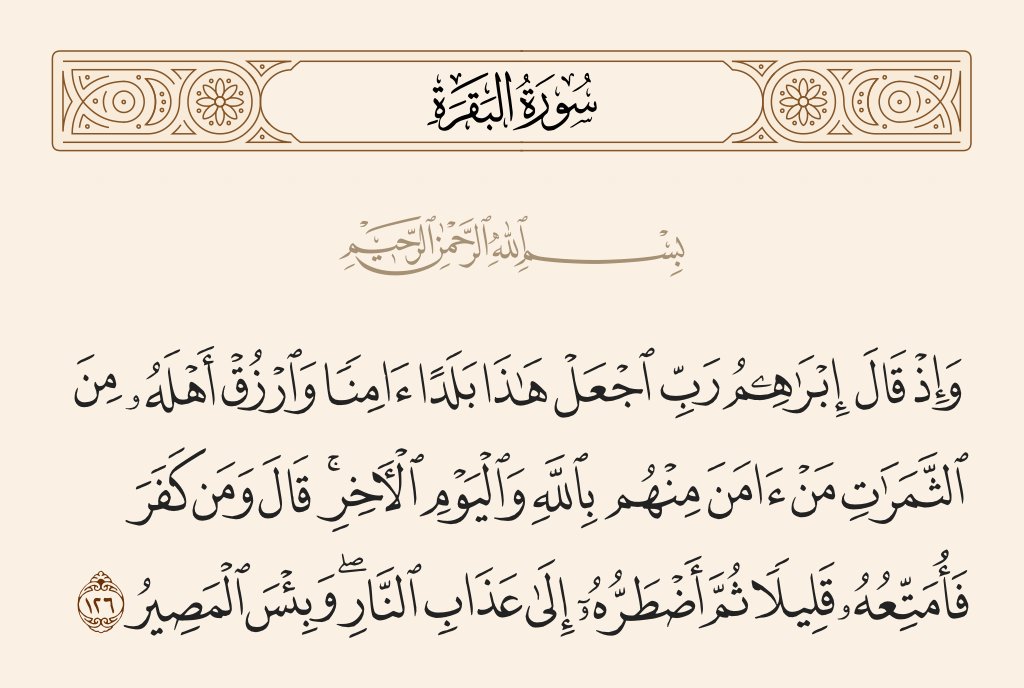 سُورَةُ البَقَرَةِ
بِسْمِ ٱللَّهِ ٱلرَّحْمَٰنِ ٱلرَّحِيمِ
وَإِذْ قَالَ إِبْرَٰهِـۧمُ رَبِّ ٱجْعَلْ هَٰذَا بَلَدًا ءَامِنًا وَٱرْزُقْ أَهْلَهُۥ مِنَ
ٱلثَّمَرَٰتِ مَنْ ءَامَنَ مِنْهُم بِٱللَّهِ وَٱلْيَوْمِ ٱلْـَٔاخِرِ ۚ قَالَ وَمَن كَفَرَ
فَأُمَتِّعُهُۥ قَلِيلًا ثُمَّ أَضْطَرُّهُۥٓ إِلَىٰ عَذَابِ ٱلنَّارِ ۖ وَبِئْسَ ٱلْمَصِيرُ ١٢٦